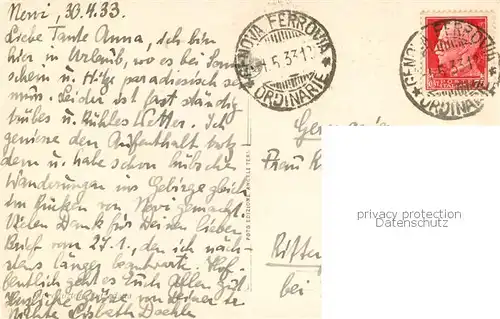 Nervi, 30.4.33.
Liebe Tante Anna, ich bin
hier in Urlaub, wo es bei Sonnen-
schein u. Hitze paradiesisch sein
muss. Leider ist fast ständig
trübes u. kühles Wetter. Ich
geniesse den Aufenthalt trotz-
dem u. habe schon hübsche
Wanderungen ins Gebirge gleich
im Rücken von Nervi gemacht.
Vielen Dank für Deinen lieben
Brief vom 27.1., den ich näch-
stens länger beantworte. Hof-
fentlich geht es Euch Allen gut.
Herzliche Grüsse von Deiner
Nichte Lisbeth
GENOVA FERROVIA
ORDINARIE
GENOVA FERROVIA
ORDINARIE
FOTO EDIZIONE
Frau
bei
privacy protection
Datenschutz